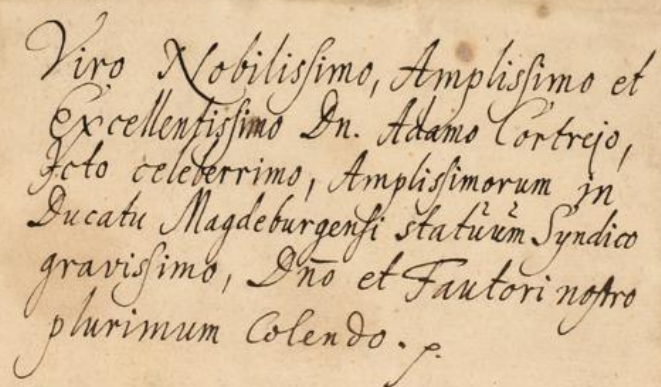 Viro Nobilissimo, Amplissimo et
Excellentissimo Dn. Adamo Cortrejo,
Icto celeberrimo, Amplissimorum in
Ducatu Magdeburgensi statuum Syndico
gravissimo, Dn̄o et Fautori nostro
plurimum Colendo. p.